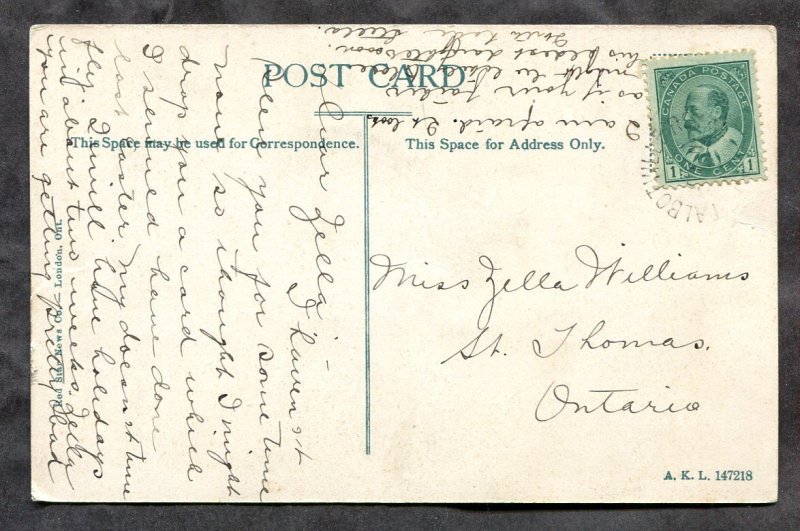 POST CARD
This Space may be used for Correspondence.
This Space for Address Only.
CANADA POSTAGE
ONE CENT
1 1
TALBOTVILLE
Miss Zella Williams
St. Thomas.
Ontario
A. K. L. 147218
Red Star News Co. — London, Ont.
Dear Zella
I haven st
seen you for some time
now so thought I might
drop you a card which
I should have done
last Easter. My doesn st time
fly I will have holidays
in about two weeks. Zella
you are getting pretty bad
I am afraid. It looks
as if your father
might be
his oldest daughter soon.